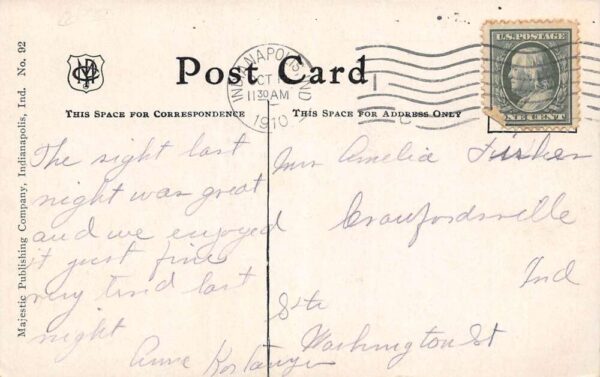 Majestic Publishing Company, Indianapolis, Ind. No. 92
Post Card
THIS SPACE FOR CORRESPONDENCE
THIS SPACE FOR ADDRESS ONLY
INDIANAPOLIS, IND
OCT
11 30 AM
1910
U.S. POSTAGE
ONE CENT
The sight last
night was great
and we enjoyed
it just fine
very tired last
night
Anna
Amelia
Crawfordsville
Ind
Washington St